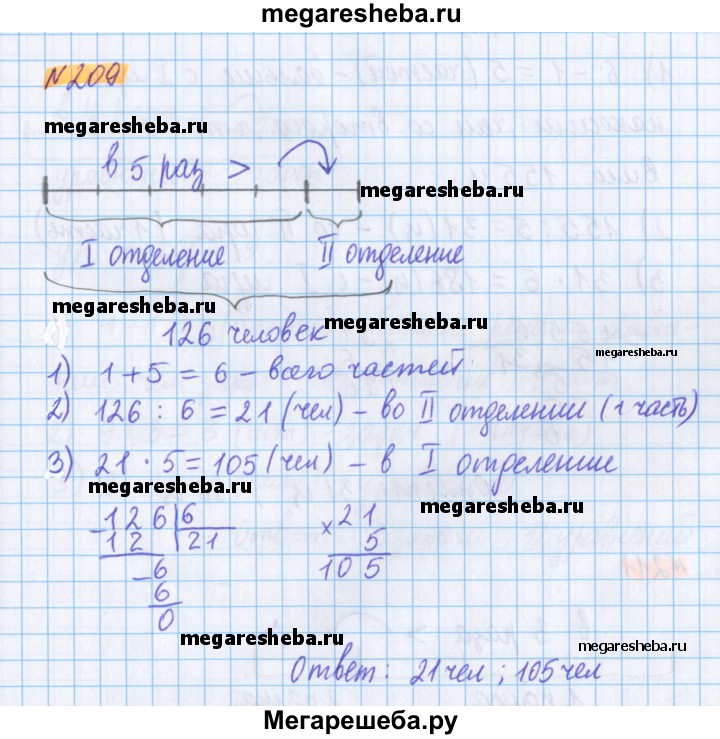 megaresheba.ru
N209
megaresheba.ru
в 5 раз >
megaresheba.ru
I отделение II отделение
megaresheba.ru
megaresheba.ru
126 человек
megaresheba.ru
1) 1 + 5 = 6 – всего частей
2) 126 : 6 = 21 (чел) – во II отделении (1 часть)
3) 21 · 5 = 105 (чел) – в I отделение
megaresheba.ru
megaresheba.ru
- 126 6
12 21
- 6
6
0
× 21
5
105
megaresheba.ru
megaresheba.ru
Ответ: 21 чел ; 105 чел
Мегарешеба.ру